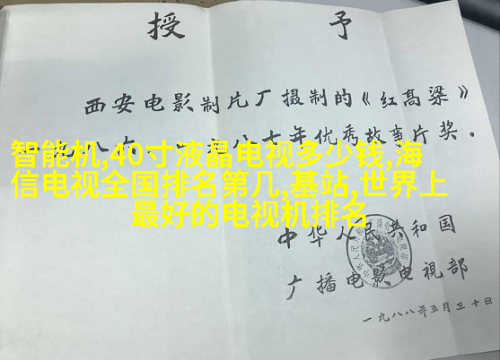 授予
西安电影制片厂摄制的《红高粱》
一九八六—一九八七年优秀故事片奖。
智能机,40寸液晶电视多少钱,海
信电视全国排名第几,基站,世界上
最好的电视机排名
中华人民共和国
广播电影电视部
一九八八年三月三十日